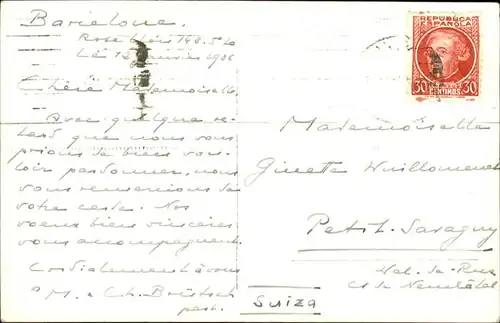 Barcelone.
Rosellón 148.5º
Le 13 janvier 1936
Chère Mademoiselle
Avec quelque re-
tard que nous vous
prions de bien vou-
loir pardonner, nous
vous remercions de
votre carte. Nos
voeux bien sincères
vous accompagnent.
Cordialement à vous
M. & Ch. Brütsch
past.
REPUBLICA
ESPAÑOLA
30 CENTIMOS 30
Mademoiselle
Ginette Wuilloment
Petit-Savagny
Val-de-Ruz
Ct de Neuchâtel
Suiza